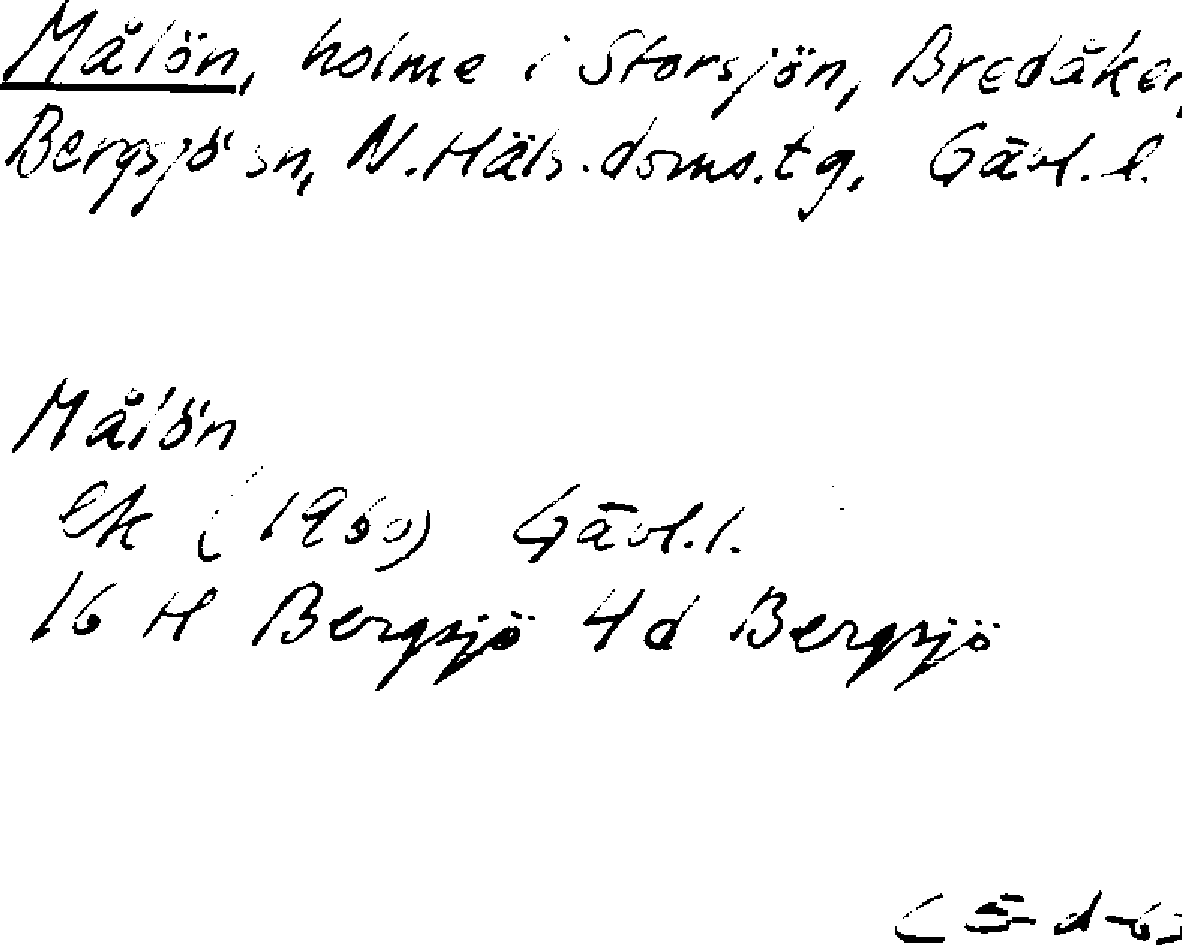 Målön, holme i Storsjön, Bredåker,
Bergsjö sn, N. Häls. doms. tg, Gävl. l.
Målön
ek (1960) Gävl. l.
16 H Bergsjö 4 d Bergsjö